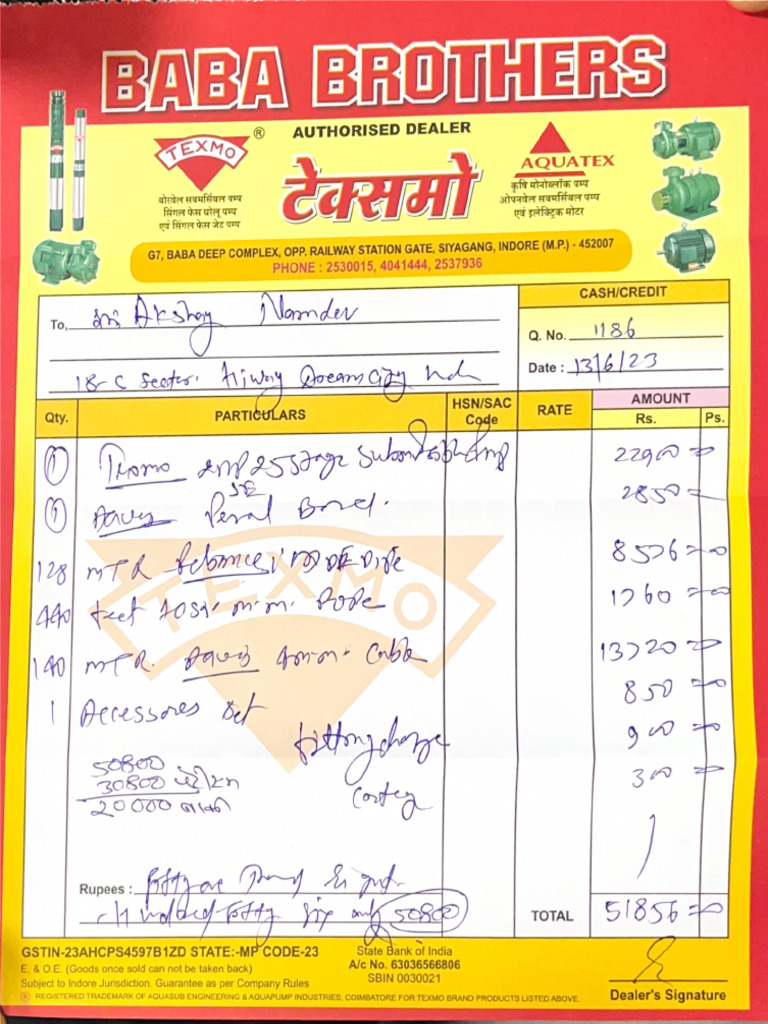 BABA BROTHERS
AUTHORISED DEALER
TEXMO ®
टेक्समो
AQUATEX
बोरवेल सबमर्सिबल पम्प
सिंगल फेस घरेलू पम्प
एवं सिंगल फेस जेट पम्प
कृषि मोनोब्लॉक पम्प
ओपनवेल सबमर्सिबल पम्प
एवं इलेक्ट्रिक मोटर
G7, BABA DEEP COMPLEX, OPP. RAILWAY STATION GATE, SIYAGANG, INDORE (M.P.) - 452007
PHONE : 2530015, 4041444, 2537936
CASH/CREDIT
To, Akshay Namdev
Q. No. 1186
18-C Sector Dream City
Date : 13/6/23
Qty. PARTICULARS HSN/SAC Code RATE AMOUNT Rs. Ps.
1 Texmo 22900=00
1 Panel 2850=
128 MTR Pipe 8576=00
440 feet Rope 1760=00
140 MTR. Cable 13720=00
1 Accessores Set 850=00
fitting charge 900=00
300=
50800
30800
20000 बाकी
TEXMO
Rupees : 50800
TOTAL 51856=00
GSTIN-23AHCPS4597B1ZD STATE:-MP CODE-23
E. & O.E. (Goods once sold can not be taken back)
Subject to Indore Jurisdiction. Guarantee as per Company Rules
State Bank of India
A/c No. 63036566806
SBIN 0030021
Dealer's Signature
® REGISTERED TRADEMARK OF AQUASUB ENGINEERING & AQUAPUMP INDUSTRIES, COIMBATORE FOR TEXMO BRAND PRODUCTS LISTED ABOVE.